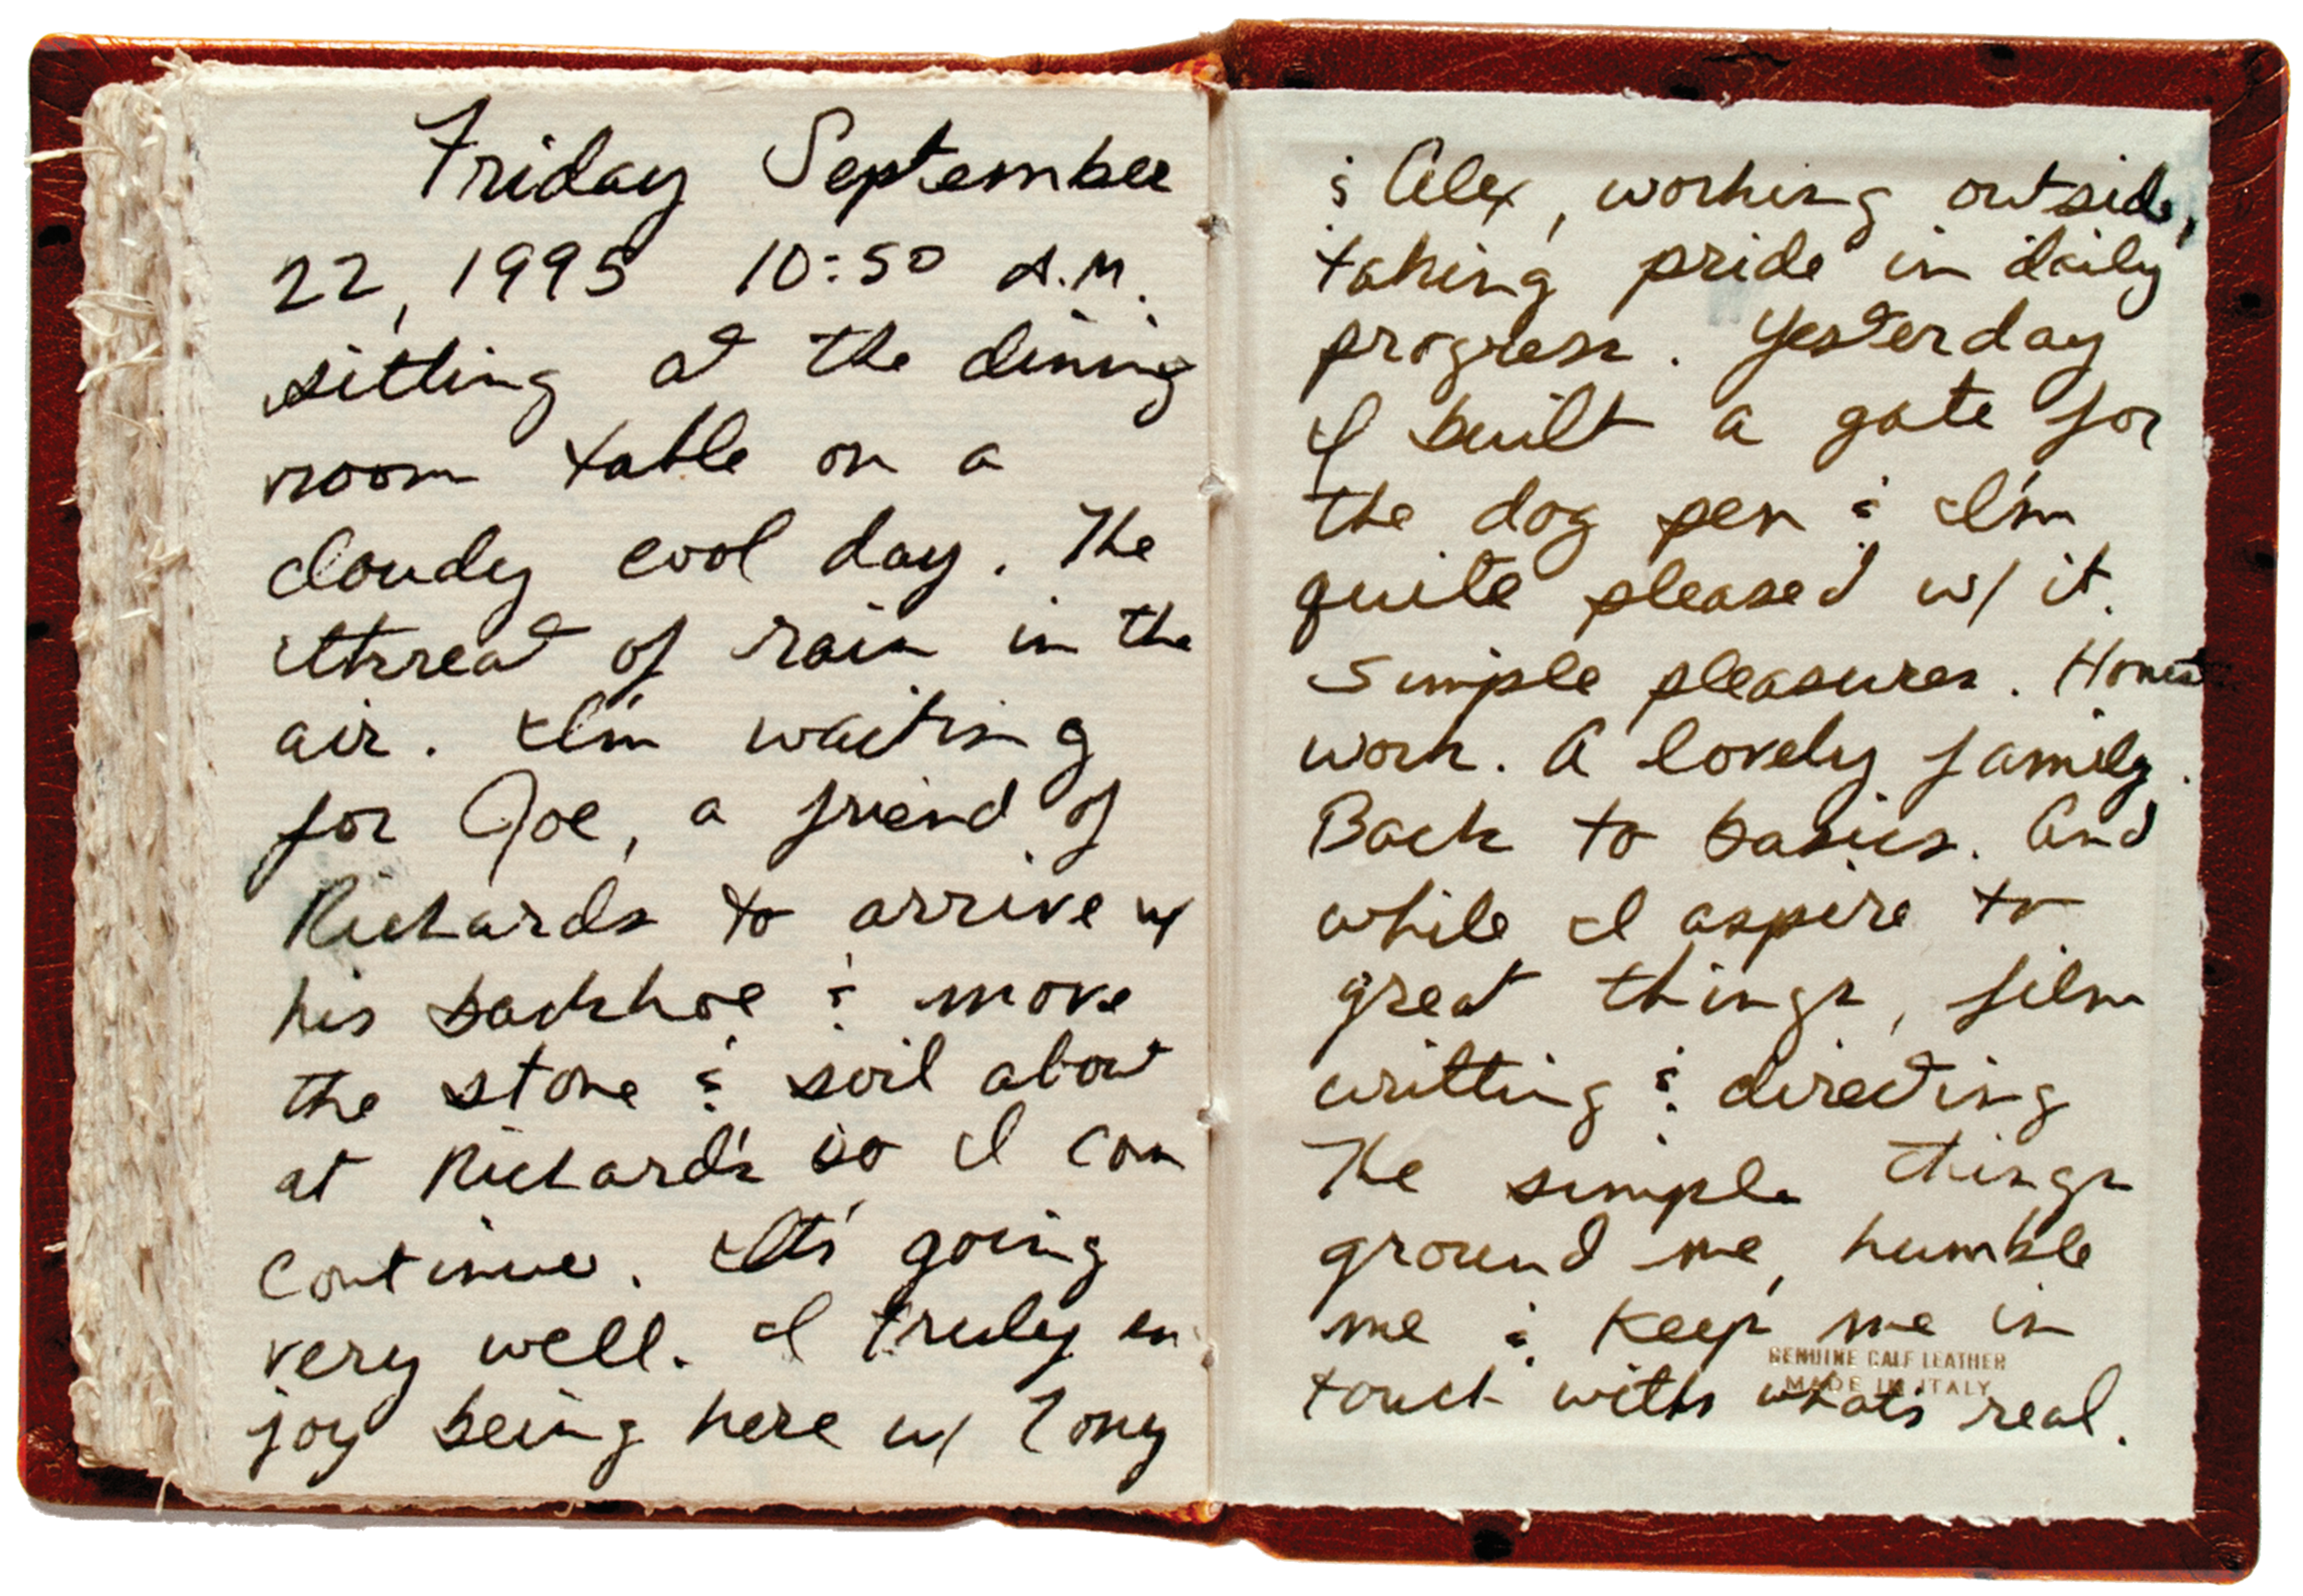 Friday September
22, 1995 10:50 A.M.
sitting at the dining
room table on a
cloudy cool day. The
threat of rain in the
air. I'm waiting
for Joe, a friend of
Richards to arrive w/
his backhoe & move
the stone & soil about
at Richard's so I can
continue. It's going
very well. I truly en
joy being here w/ Tony
& Alex, working outside,
taking pride in daily
progress. Yesterday
I built a gate for
the dog pen & I'm
quite pleased w/ it.
Simple pleasures. Honest
work. A lovely family.
Back to basics. And
while I aspire to
great things, film
writting & directing
The simple things
ground me, humble
me & keep me in
GENUINE CALF LEATHER
MADE IN ITALY
touch with what's real.